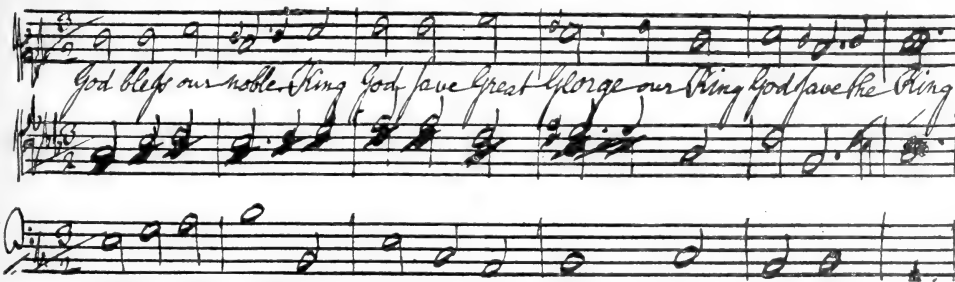 God bless our noble King God save Great George our King God save the King